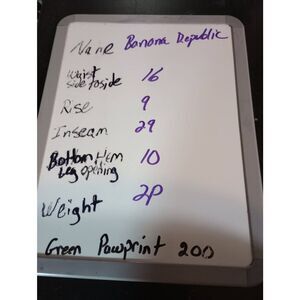 Name Banana Republic
Waist side to side 16
Rise 9
Inseam 29
Bottom Hem Leg opening 10
Weight 2P
Green Pawprint 200